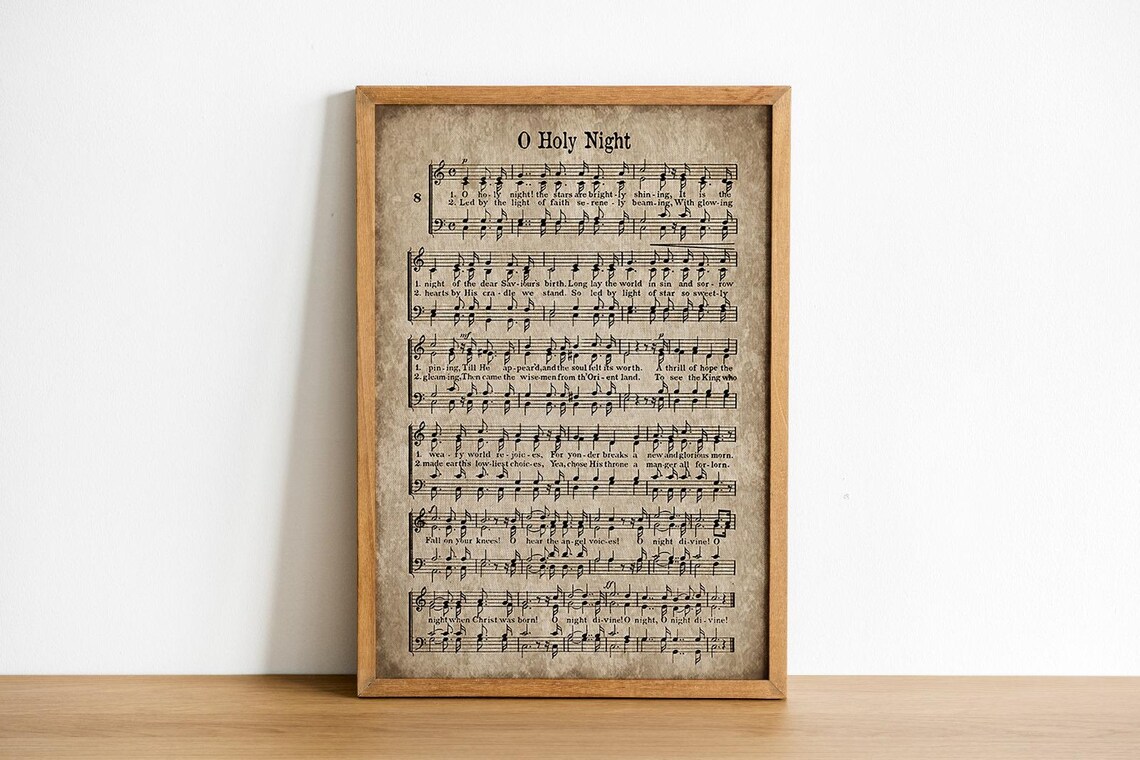 O Holy Night
p
8
1. O ho-ly night! the stars are bright-ly shin-ing, It is the
2. Led by the light of faith se-rene-ly beam-ing, With glow-ing
1. night of the dear Sav-iour's birth. Long lay the world in sin and sor-row
2. hearts by His cra-dle we stand. So led by light of star so sweet-ly
mf p
1. pin-ing, Till He ap-pear'd, and the soul felt its worth. A thrill of hope the
2. gleam-ing, Then came the wise-men from th'Ori-ent land. To see the King who
1. wea-ry world re-joic-es, For yon-der breaks a new and glorious morn.
2. made earth's low-liest choic-es, Yea, chose His throne a man-ger all for-lorn.
Fall on your knees! O hear the an-gel voic-es! O night di-vine! O
ff
night when Christ was born! O night di-vine! O night, O night di-vine!